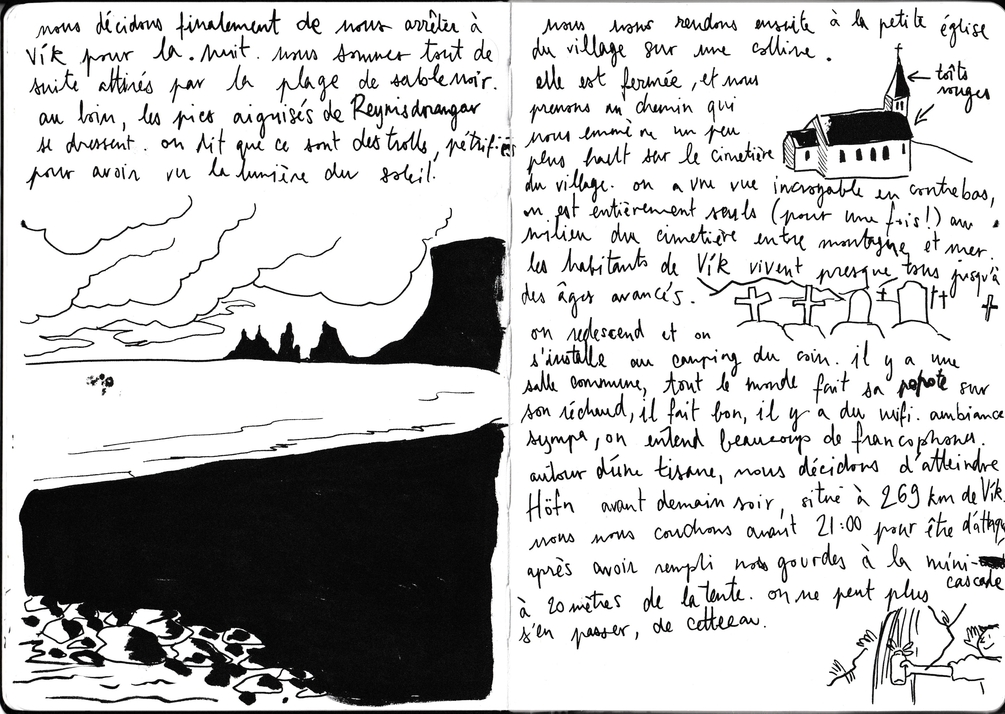 nous décidons finalement de nous arrêter à
Vík pour la nuit. nous sommes tout de
suite attirés par la plage de sable noir.
au loin, les pics aiguisés de Reynisdrangar
se dressent. on dit que ce sont des trolls, pétrifiés
pour avoir vu la lumière du soleil.
nous nous rendons ensuite à la petite église
du village sur une colline.
elle est fermée, et nous
prenons un chemin qui
nous emmène un peu
plus haut sur le cimetière
du village. on a une vue incroyable en contrebas,
on est entièrement seuls (pour une fois!) au
milieu du cimetière entre montagne et mer.
les habitants de Vík vivent presque tous jusqu'à
des âges avancés.
toîts
rouges
on redescend et on
s'installe au camping du coin. il y a une
salle commune, tout le monde fait sa popote sur
son réchaud, il fait bon, il y a du wifi. ambiance
sympa, on entend beaucoup de francophones.
autour d'une tisane, nous décidons d'atteindre
Höfn avant demain soir, situé à 269 km de Vík.
nous nous couchons avant 21:00 pour être d'attaque
après avoir rempli nos gourdes à la mini-
cascade
à 20 mètres de la tente. on ne peut plus
s'en passer, de cette eau.